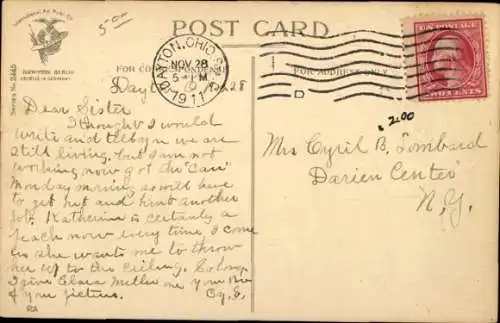 International Art Publ. Co.
NEW YORK - BERLIN
Series No. 2445
5-00
POST CARD
FOR CORRESPONDENCE
FOR ADDRESS ONLY
DAYTON, OHIO
NOV 28
5 - PM
1911
D
U.S. POSTAGE
TWO CENTS
2.00
Dayton O Nov 28
Dear Sister
I thought I would
write and tell you we are
still living. but I am not
working now got the "Can"
Monday morning so will have
to get hip and hunt another
job. Katherine is certainly a
peach now every time I come
in she wants me to throw
her up to the ceiling. So long
I give Clara Miller one
of your pictures. Cy. E.
Mrs Cyril B. Lombard
Darien Center
N.Y.